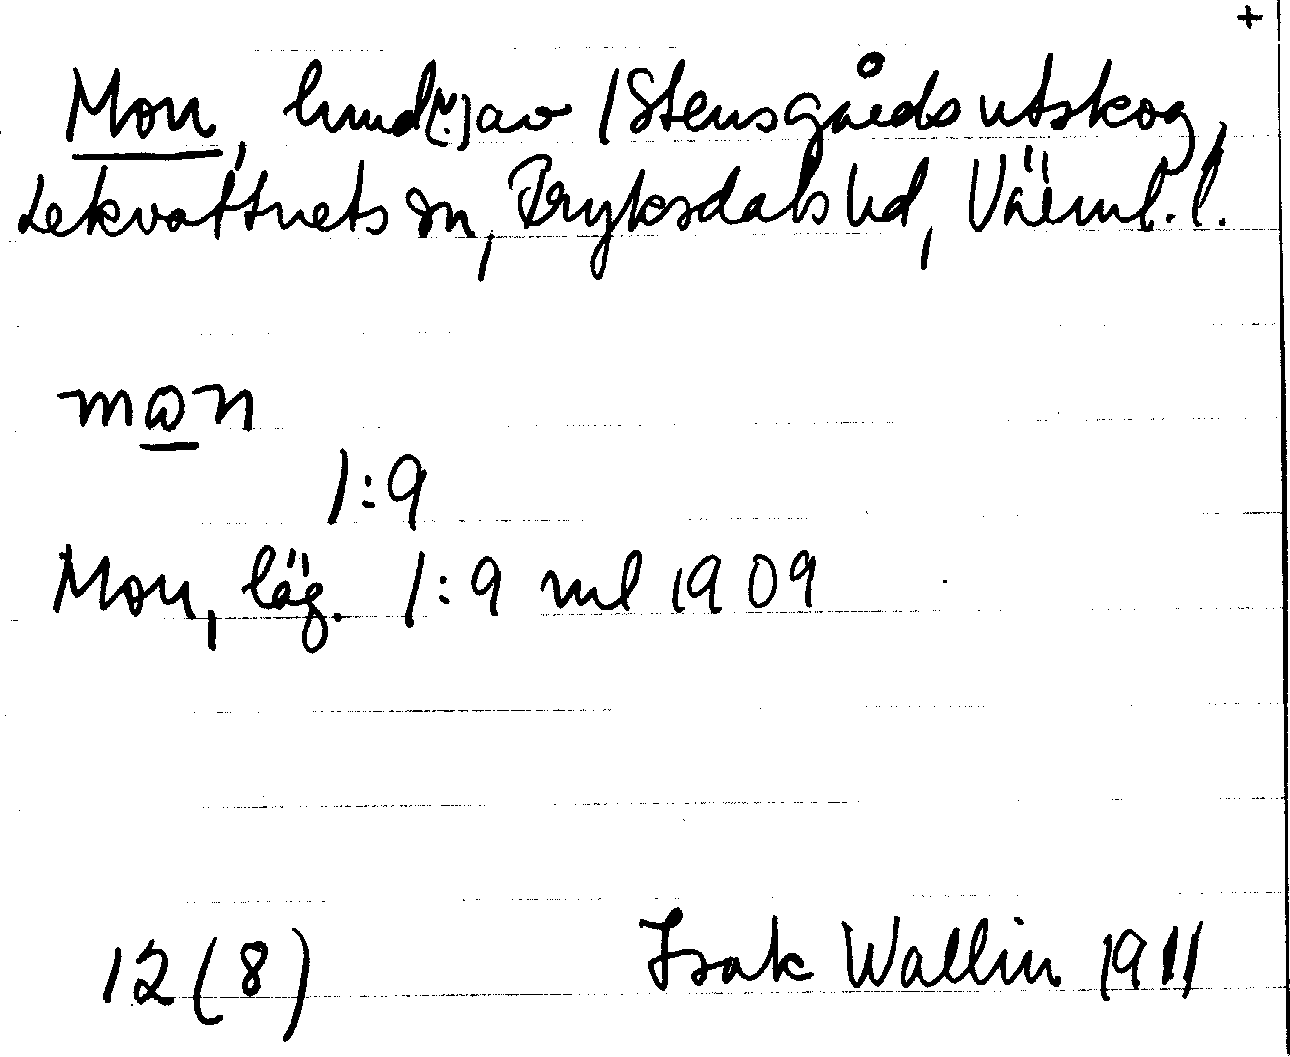 +
Mon, hmd[?] av 1 Stensgårds utskog,
Lekvattnets sn, Fryksdals hd, Värml. l.
mon
1:9
Mon, läg. 1:9 ml 1909
12 (8) Isak Wallin 1911